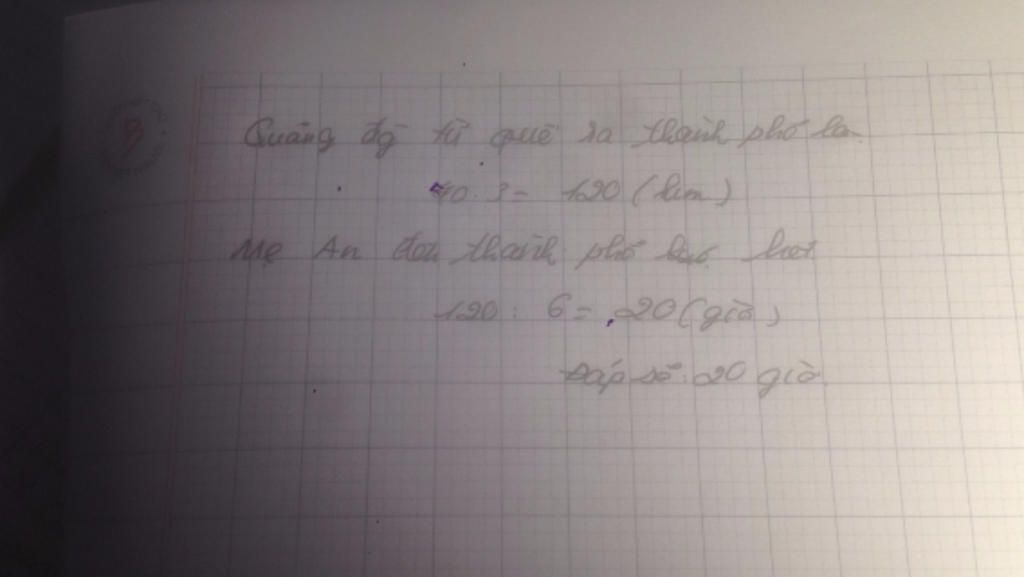 B
Quãng đg từ quê ra thành phố la
40. 3 = 120 (km)
Mẹ An đến thành phố hết
120 : 6 = 20 (giờ)
Đáp số: 20 giờ